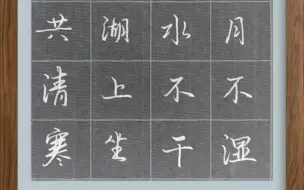 月不湿
水不干
湖上坐
共清寒